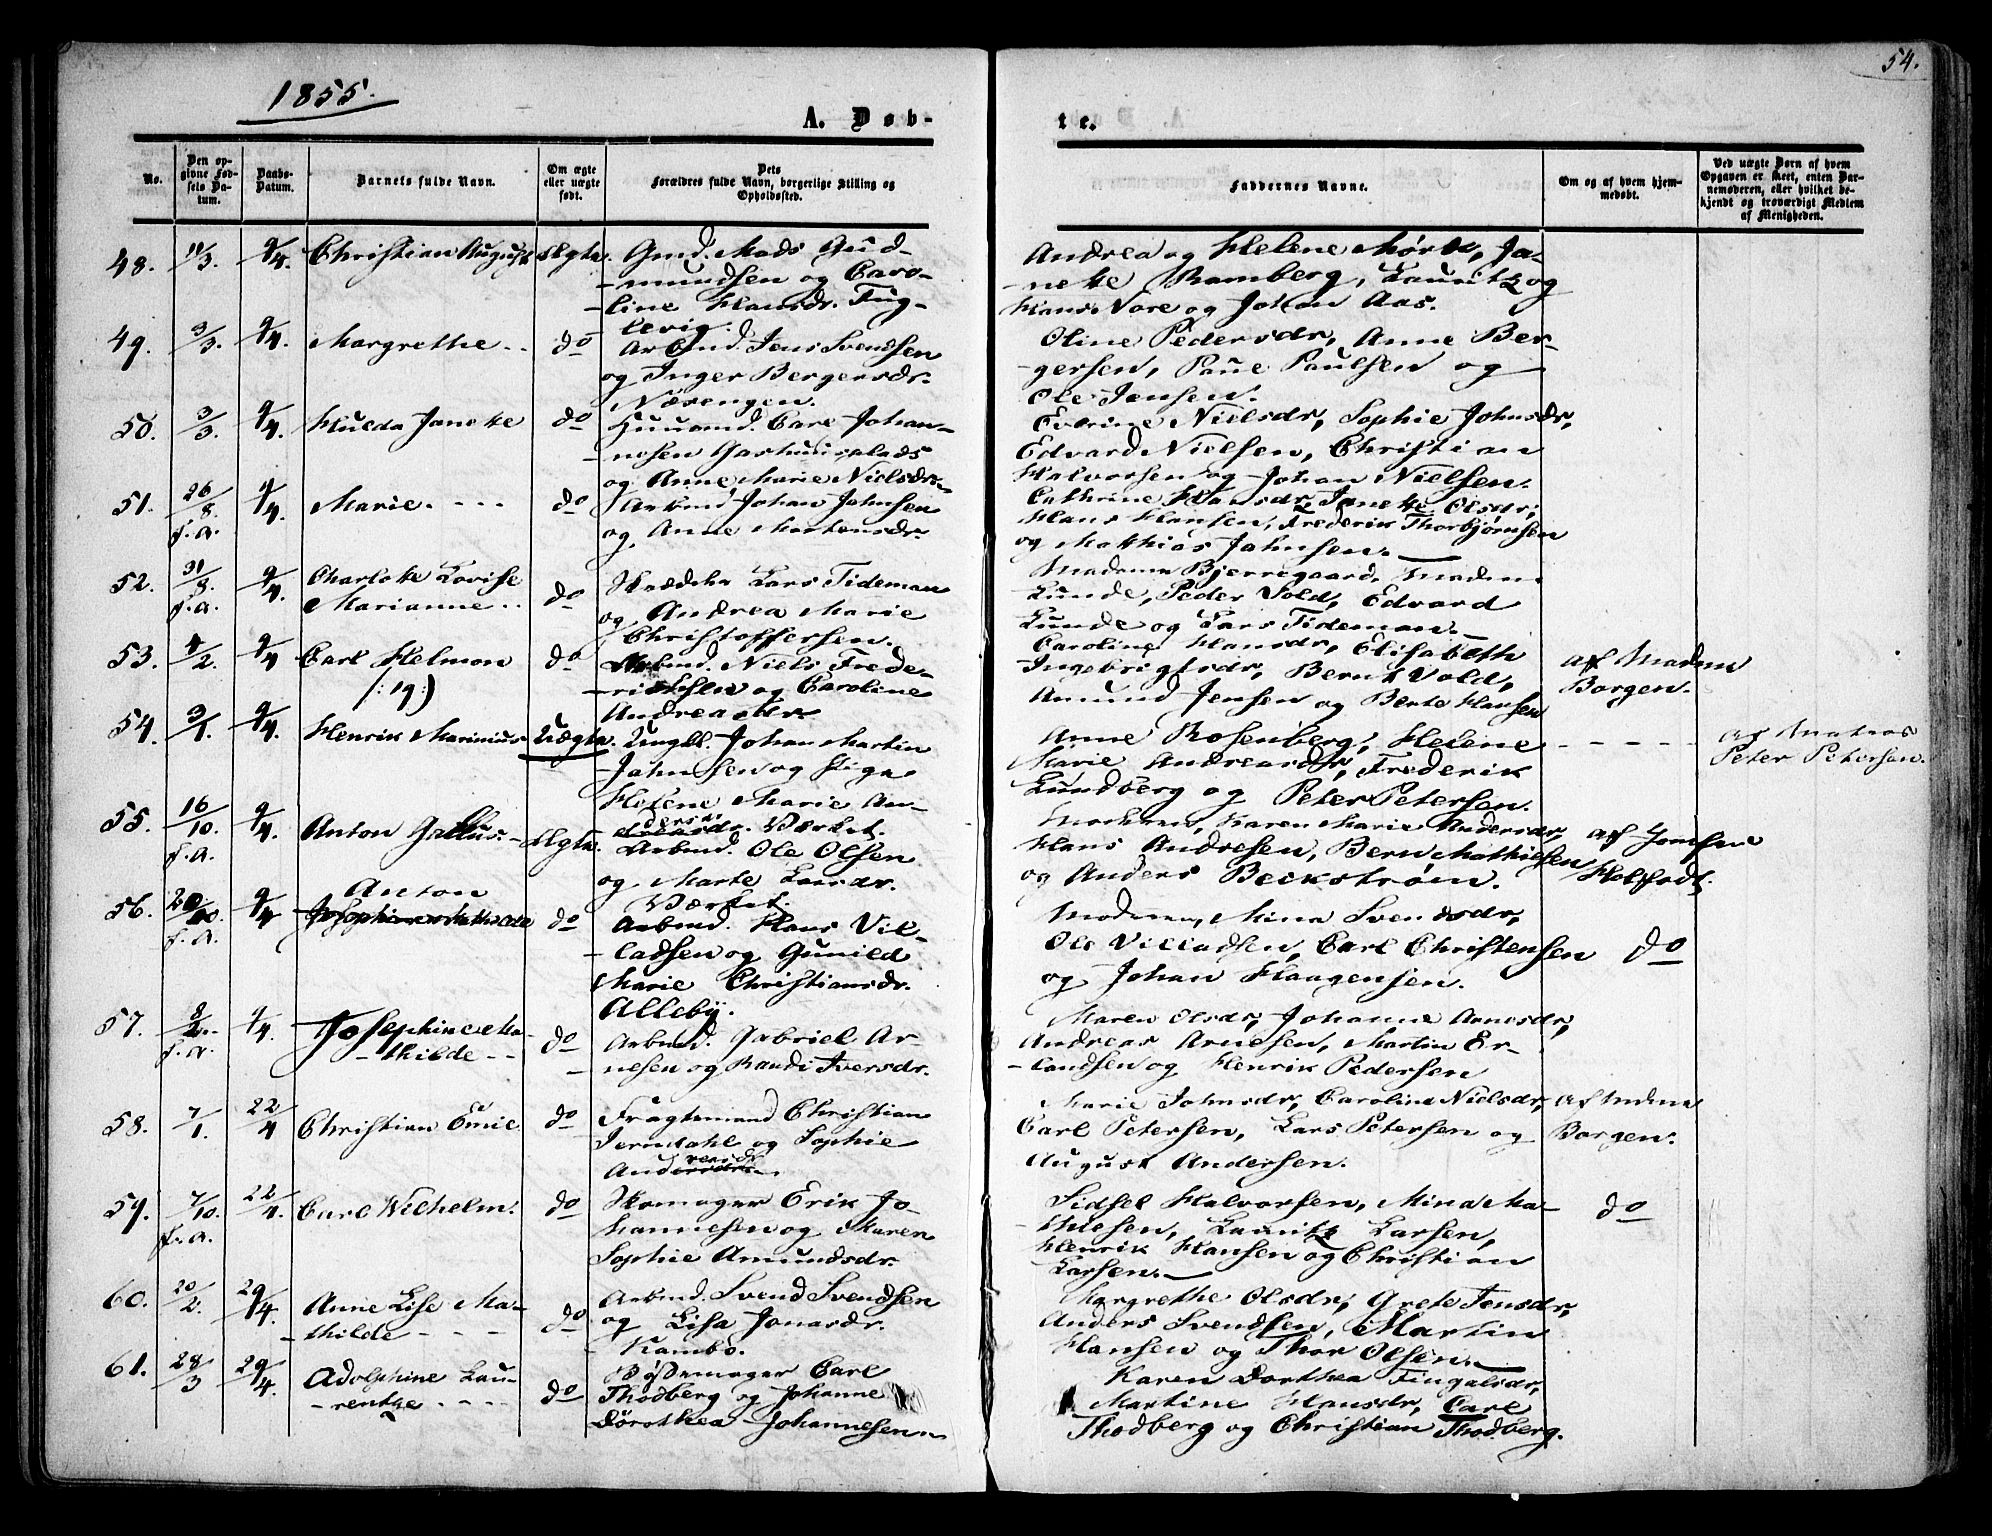 54.
1855.
A. Døb-
te.
No.
Den op-
givne Fød-
sels Da-
tum.
Daabs-
Datum.
Barnets fulde Navn.
Om ægte
eller uægte
født.
Dets
Forældres fulde Navn, borgerlige Stilling og
Opholdssted.
Faddernes Navne.
Om og af hvem hjem-
medøbt.
Ved uægte Børn af hvem
Opgaven er skeet, enten Bar-
nemoderen, eller hvilket be-
kjendt og troværdigt Medlem
af Menigheden.
48. 11/3. 9/4. Christian August Ægte. Gmd. Mads Gud-
mundsen og Caro-
line Hansdr. Fug-
levig.
Andrea og Helene Mørk, Ja-
nette Ramberg, Lauritz og
Hans Nore og Johan Aas.
49. 3/3. 9/4. Margrethe do Arbmd. Jens Svendsen
og Inger Bergersdr.
Næsengen.
Oline Pedersdr, Anne Ber-
gersen, Paul Paulsen og
Ole Jensen.
50. 3/3. 9/4. Hulda Janette do Huusmd. Carl Johan-
nesen
og Anne Marie Nielsdr.
Edvine Nielsdr, Sophie Johnsdr,
Edvard Nielsen, Christian
Halvorsen og Johan Nielsen.
51. 26/8. f.a. 9/4. Marie. do Arbmd Johan Johnsen
og Anne Mortensdr.
Cathrine Hansdr, Janette Olsdr,
Hans Hansen, Frederik Thorbjørnsen
og Mathias Johnsen.
52. 31/8. f.a. 9/4. Charlotte Lovise
Marianne do Skrædder Lars Tideman
og Andrea Marie
Christoffersen.
Madame Bjerregaard, Madm
Lunde, Peder Vold, Edvard
Lunde og Lars Tideman.
53. 4/2. 9/4 Carl Helmon
(: ig :) do Arbmd. Niels Frede-
riksen og Caroline
Andreasdr.
Caroline Hansdr, Elisabeth
Ingebrigtsdr, Bernt Vold,
Amund Jensen og Berte Hansen
af Madme
Borgen.
54. 3/1. 9/4. Henrik Marinius Uægte. Ungkl. Johan Martin
Johnsen og Pige
Helene Marie An-
dersdr. Værket.
Anne Rosenberg, Helene
Marie Andreasdr, Frederik
Lundberg og Peter Petersen.
af Matros
Peter Petersen.
55. 16/10. f.a. 9/4. Anton Gallus. Ægte. Arbmd. Ole Olsen
og Marte Larsdr.
Værket.
Moderen, Karen Marie Andersdr,
Hans Andresen, Bern Mathiesen
og Anders Beckstrøm.
af Jomfrue
Holstad.
56. 20/10. f.a. 9/4 Anton
Josephine Mathilde do Arbmd. Hans Vil-
ladsen og Gunild
Marie Christiansdr.
Alleby.
Moderen, Mina Svendsdr,
Ole Villadsen, Carl Christensen
og Johan Haagensen.
do
57. 8/2. f.a. 9/4. Josephine Ma-
thilde do Arbmd. Gabriel Ar-
nesen og Randi Iversdr.
Maren Olsdr, Johanne Arnesdr,
Andreas Arnesen, Martin Er-
landsen og Henrik Pedersen
58. 7/1. 22/4 Christian Emil do Fragtemand Christian
Jerndahl og Sophie
Andreasdr.
Marie Johnsdr, Caroline Nielsdr,
Carl Petersen, Lars Petersen og
August Andersen.
af Mdme
Borgen.
59. 7/10. f.a. 22/4. Carl Wilhelm. do Skomager Erik Jo-
hannesen og Maren
Sophie Amundsdr.
Sidsel Halvorsen, Mina Ma-
thiesen, Lauritz Larsen,
Henrik Hansen og Christian
Larsen.
do
60. 20/2. 29/4. Anne Lise Ma-
thilde do Arbmd. Svend Svendsen
og Lisa Jonasdr.
Kambo.
Margrethe Olsdr, Grete Jensdr,
Anders Svendsen, Martin
Hansen og Thor Olsen.
61. 28/3 29/4. Adolphine Lau-
rentze do Bødkmager Carl
Thodberg og Johanne
Dorothea Johannesen
Karen Dorthea Fingalsdr,
Martine Hansdr, Carl
Thodberg og Christian Thodberg.